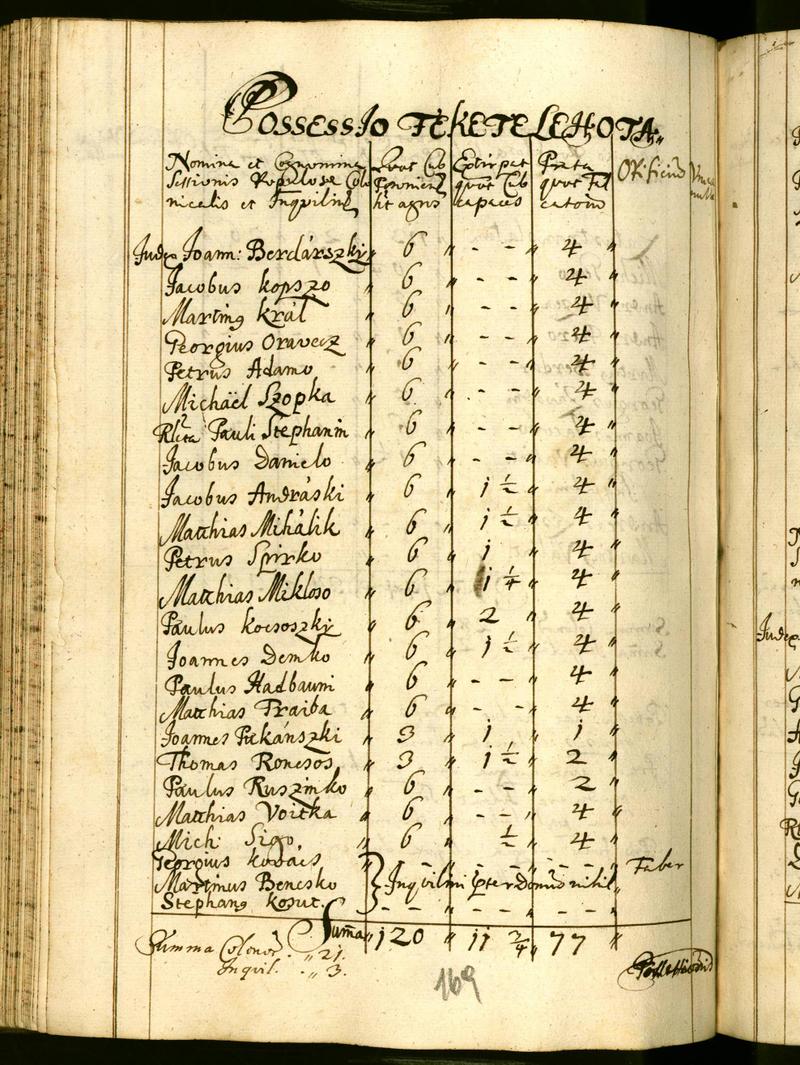 Possessio FEKETE LEHOTA
Nomina et Cognomina Quot Cub Extirpat Prata
Sessionis Populosae Colo Posonien quot Cub quot Fal Opificium
nicalis et Inquilin sit agris capaces catorum
Judex Joann: Berdárszki 6 " - - " 4 "
Jacobus kopszo " 6 " - - " 4 "
Martinus král " 6 " - - " 4 "
Georgius Oravecz " 6 " - - " 4 "
Petrus Adamo " 6 " - - " 4 "
Michäel Szopka " 6 " - - " 4 "
Rlcta Pauli Stephanin " 6 " - - " 4 "
Jacobus Danielo " 6 " - - " 4 "
Jacobus Andráski " 6 " 1 1/2 " 4 "
Matthias Mihálik " 6 " 1 1/2 " 4 "
Petrus Spirko " 6 " 1 " 4 "
Matthias Mikloso " 6 " 1 1/4 " 4 "
Paulus kocsoszki " 6 " 2 " 4 "
Joannes Demko " 6 " 1 1/2 " 4 "
Paulus Hadbauni " 6 " - - " 4 "
Matthias Fraiba " 6 " - - " 4 "
Joannes Pukánszki " 3 " 1 " 1 "
Thomas Roncsos " 3 " 1 1/2 " 2 "
Paulus Ruszinko " 6 " - - " 2 "
Matthias Voitka " 6 " - - " 4 "
Mich: Sigo " 6 " 1/2 " 4 "
Georgius kovács - - - - - - Faber
Martinus Bencsko } Inquilini praeter Domum nihil
Stephanus kosut. - - - - - -
Summa " 120 " 11 3/4 " 77 "
Summa Colonor. " 21.
Inquil. " 3.
Possessionis
169